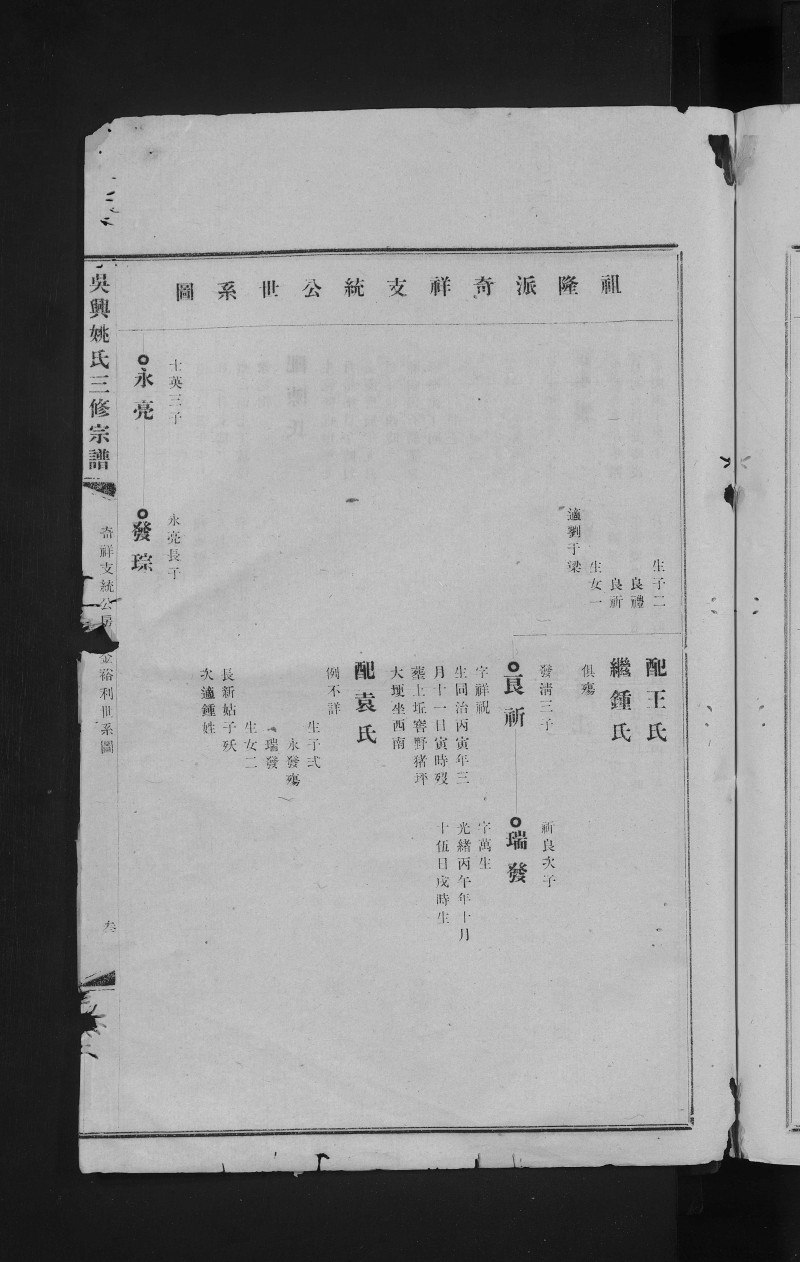 祖隆派奇祥支統公世系圖
生子二
良禮
良祈
生女一
適劉于梁
配王氏
繼鍾氏
俱殤
發淸三子
良祈
字祥祝
生同治丙寅年三
月十一日寅時歿
葬上坵窖野猪坪
大埂坐西南
配袁氏
例不詳
生子弍
永發殤
瑞發
生女二
長新姑子殀
次適鍾姓
祈良次子
瑞發
字萬生
光緒丙午年十月
十伍日戌時生
士英三子
永亮
永亮長子
發琮
吳興姚氏三修宗譜
奇祥支統公房
金裕利世系圖
叁